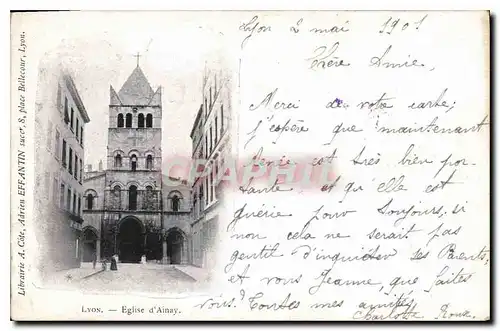 Librairie A. Côte, Adrien EFFANTIN succr, 8, place Bellecour, Lyon.
Lyon 2 mai 1901
Chère Amie,
Merci de votre carte,
j'espère que maintenant
est très bien por-
tante et qu'elle est
guérie pour toujours, si
non cela ne serait pas
gentil d'inquiéter des Parents,
et vous Jeanne que faites
vous? Toutes mes amitiés
Charlotte
LYON. — Eglise d'Ainay.
CPARAMA